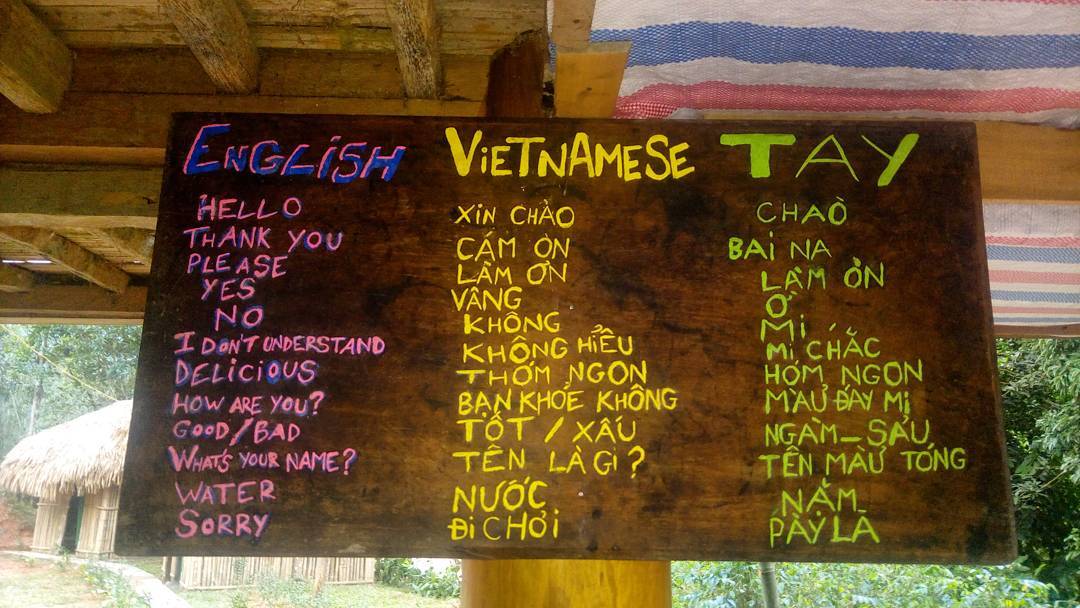 ENGLISH VIETNAMESE TAY
HELLO XIN CHẢO CHAÒ
THANK YOU CÁM ÒN BAI NA
PLEASE LÀM ƠN LÀM ÒN
YES VÂNG Ở
NO KHÔNG Mi
I DON'T UNDERSTAND KHÔNG HIỂU Mi CHẮC
DELICIOUS THƠM NGON HƠM NGON
HOW ARE YOU? BẠN KHOẺ KHÔNG MAỬ ĐAY Mị
GOOD/BAD TỐT / XẤU NGÀM-SẤU
WHAT'S YOUR NAME? TÊN LÀ Gì? TÊN MAỬ TÓNG
WATER NƯỚC NẶM
SORRY Đi CHƠi PÀY LA